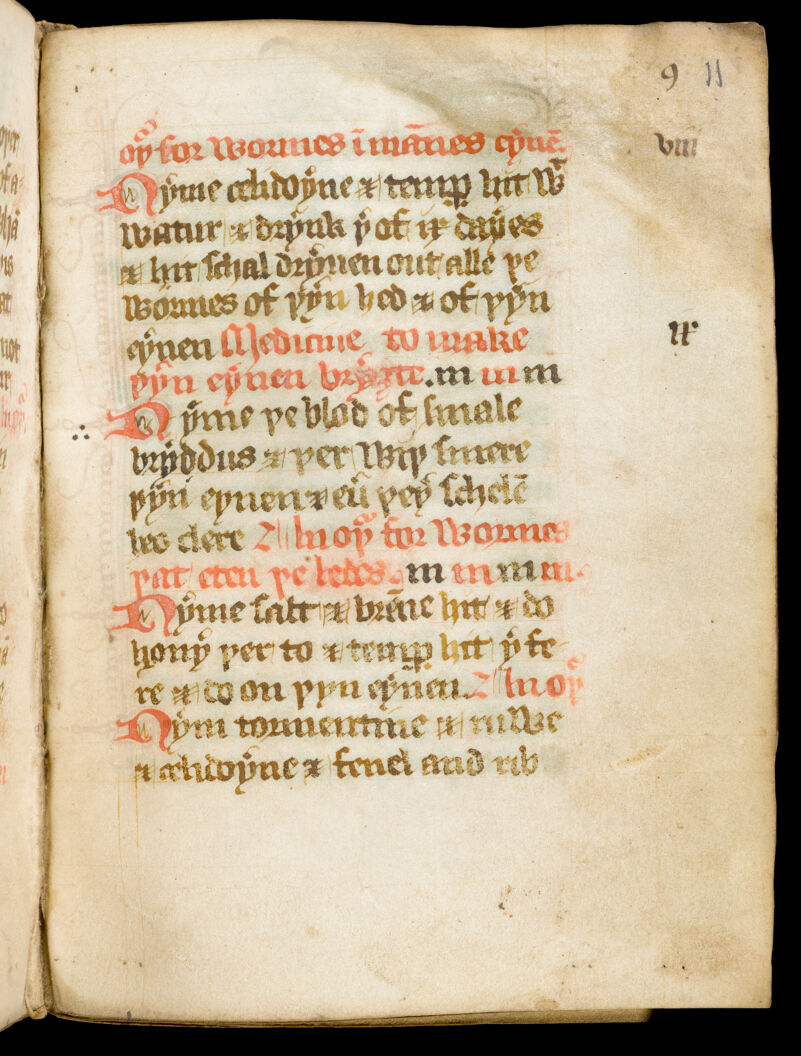 9 11
oþͬ for wormes ī mānes eyne.
viii
Nyme celidoyne & temꝑ hit wͭ
watur & drynk þͬ of ix dayes
& hit schal drywen out alle þe
wormes of þyn hed & of þyn
eynen Medicine to make
ix
þyn eynen bryȝte
Nyme þe blod of smale
bryddus & þer wiþ smere
þyn eynen & eū þeẏ schulē
beo clere Anoþͬ for wormes
þat eten þe ledes
Nyme salt & brēne hit & do
hony þer to & temꝑ hit yfe
re & do on þyn eynen. Anoþͬ
Nym tormentine & ruwe
& celidoyne & fenel and rib